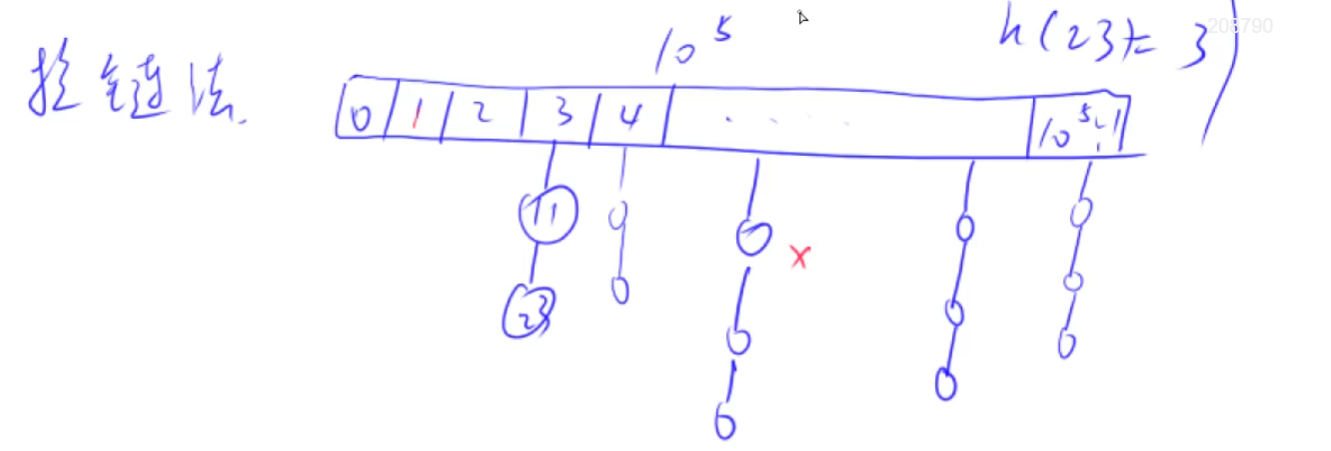 10⁵
h(23)= 3
208790
拉链法.
0 1 2 3 4 ..... 10⁵-1
11
23
x